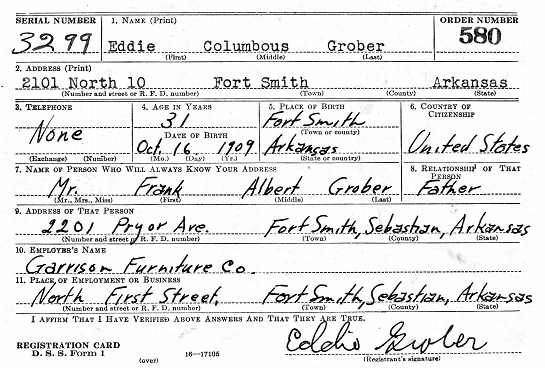 SERIAL NUMBER 1. NAME (Print) ORDER NUMBER
3299 Eddie Columbous Grober 580
(First) (Middle) (Last)
2. ADDRESS (Print)
2101 North 10 Fort Smith Arkansas
(Number and street or R. F. D. number) (Town) (County) (State)
3. TELEPHONE 4. AGE IN YEARS 5. PLACE OF BIRTH 6. COUNTRY OF CITIZENSHIP
None 31 Fort Smith
DATE OF BIRTH (Town or county)
Oct. 16 1909 Arkansas United States
(Exchange) (Number) (Mo.) (Day) (Yr.) (State or country)
7. NAME OF PERSON WHO WILL ALWAYS KNOW YOUR ADDRESS 8. RELATIONSHIP OF THAT PERSON
Mr. Frank Albert Grober Father
(Mr., Mrs., Miss) (First) (Middle) (Last)
9. ADDRESS OF THAT PERSON
2201 Pryor Ave. Fort Smith, Sebastian, Arkansas
(Number and street or R. F. D. number) (Town) (County) (State)
10. EMPLOYER'S NAME
Garrison Furniture Co.
11. PLACE OF EMPLOYMENT OR BUSINESS
North First Street, Fort Smith, Sebastian, Arkansas
(Number and street or R. F. D. number) (Town) (County) (State)
I AFFIRM THAT I HAVE VERIFIED ABOVE ANSWERS AND THAT THEY ARE TRUE.
REGISTRATION CARD Eddie Grober
D. S. S. Form 1 (over) 16—17105 (Registrant's signature)